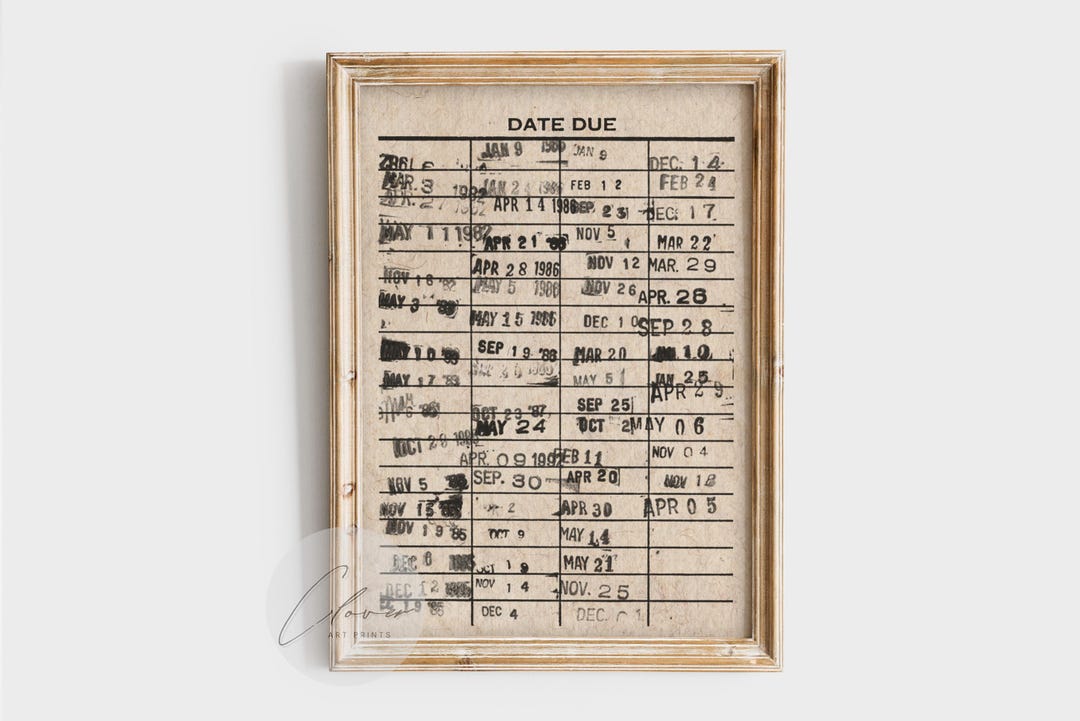 DATE DUE
MAR. 3 1982
APR. 27 1982
MAY 11 1982
NOV 16 '82
MAY 3 '83
MAY 10 '83
MAY 17 '83
MAY 6 '85
OCT 28 198
NOV 5
NOV 15
NOV 19 '85
DEC 6 1985
DEC 12 1985
19 '85
JAN 9 1986
JAN 24 1986
APR 14 1986
APR 21 '86
APR 28 1986
MAY 5 1986
MAY 15 1986
SEP 19 '86
OCT 23 '87
MAY 24
APR. 09 1992
SEP. 30
2
OCT 9
OCT 19
NOV 14
DEC 4
JAN 9
FEB 12
SEP. 23
NOV 5
NOV 12
NOV 26
DEC 10
MAR 20
MAY 5
SEP 25
OCT 2
FEB 11
APR 20
APR 30
MAY 14
MAY 21
NOV. 25
DEC. 1
DEC. 14
FEB 24
DEC. 17
MAR 22
MAR. 29
APR. 26
SEP 28
10
JAN 25
APR 29
MAY 06
NOV 04
NOV 18
APR 05
Clover
ART PRINTS